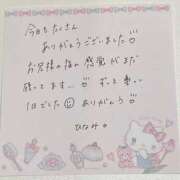 今日もたくさん
ありがとうございました
お兄様の指の感覚がまだ
残ってます…
ずっと幸い
1日でした ありがとう
ひなみ